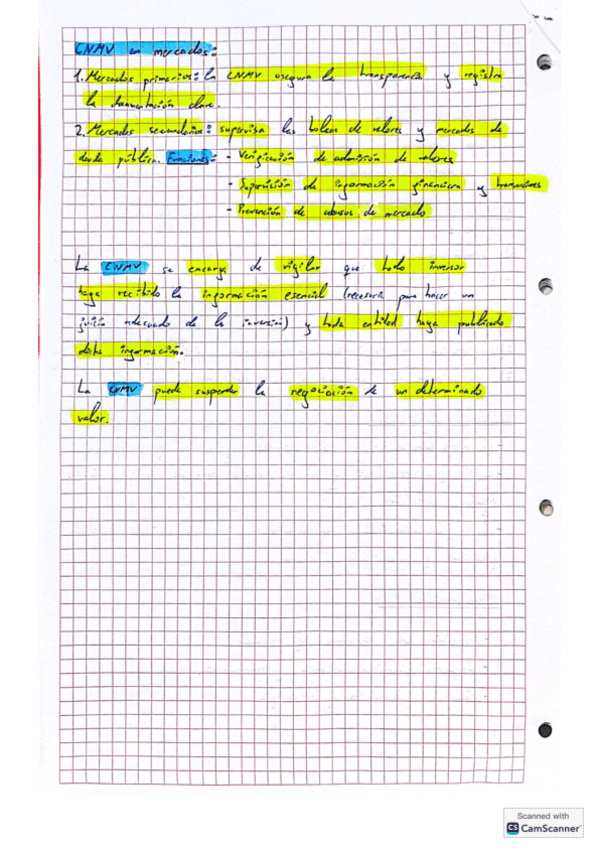 CNMV en mercados:
1. Mercados primarios: la CNMV asegura la transparencia y registra
la documentación clave.
2. Mercados secundarios: supervisa las bolsas de valores y mercados de
deuda pública. Funciones: - Verificación de admisión de valores
- Supervisión de información financiera y transacciones
- Prevención de abusos de mercado
La CNMV se encarga de vigilar que todo inversor
haya recibido la información esencial (necesaria para hacer un
juicio adecuado de la inversión) y toda entidad haya publicado
dicha información.
La CNMV puede suspender la negociación de un determinado
valor.
Scanned with
CS CamScanner